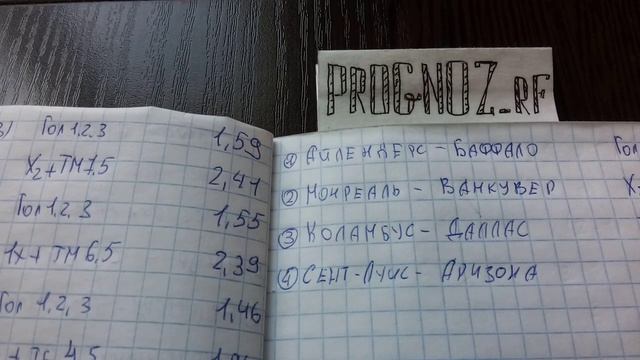 PROGNOZ_RF
3) Гол 1,2,3 1,59
X2+ТМ7,5 2,41
Гол 1,2,3 1,55
1X+ТМ6,5 2,39
Гол 1,2,3 1,46
4,5
① АЙЛЕНДЕРС - БАФФАЛО Гол
② МОНРЕАЛЬ - ВАНКУВЕР X
③ КОЛАМБУС - ДАЛЛАС
④ СЕНТ-ЛУИС - АРИЗОНА